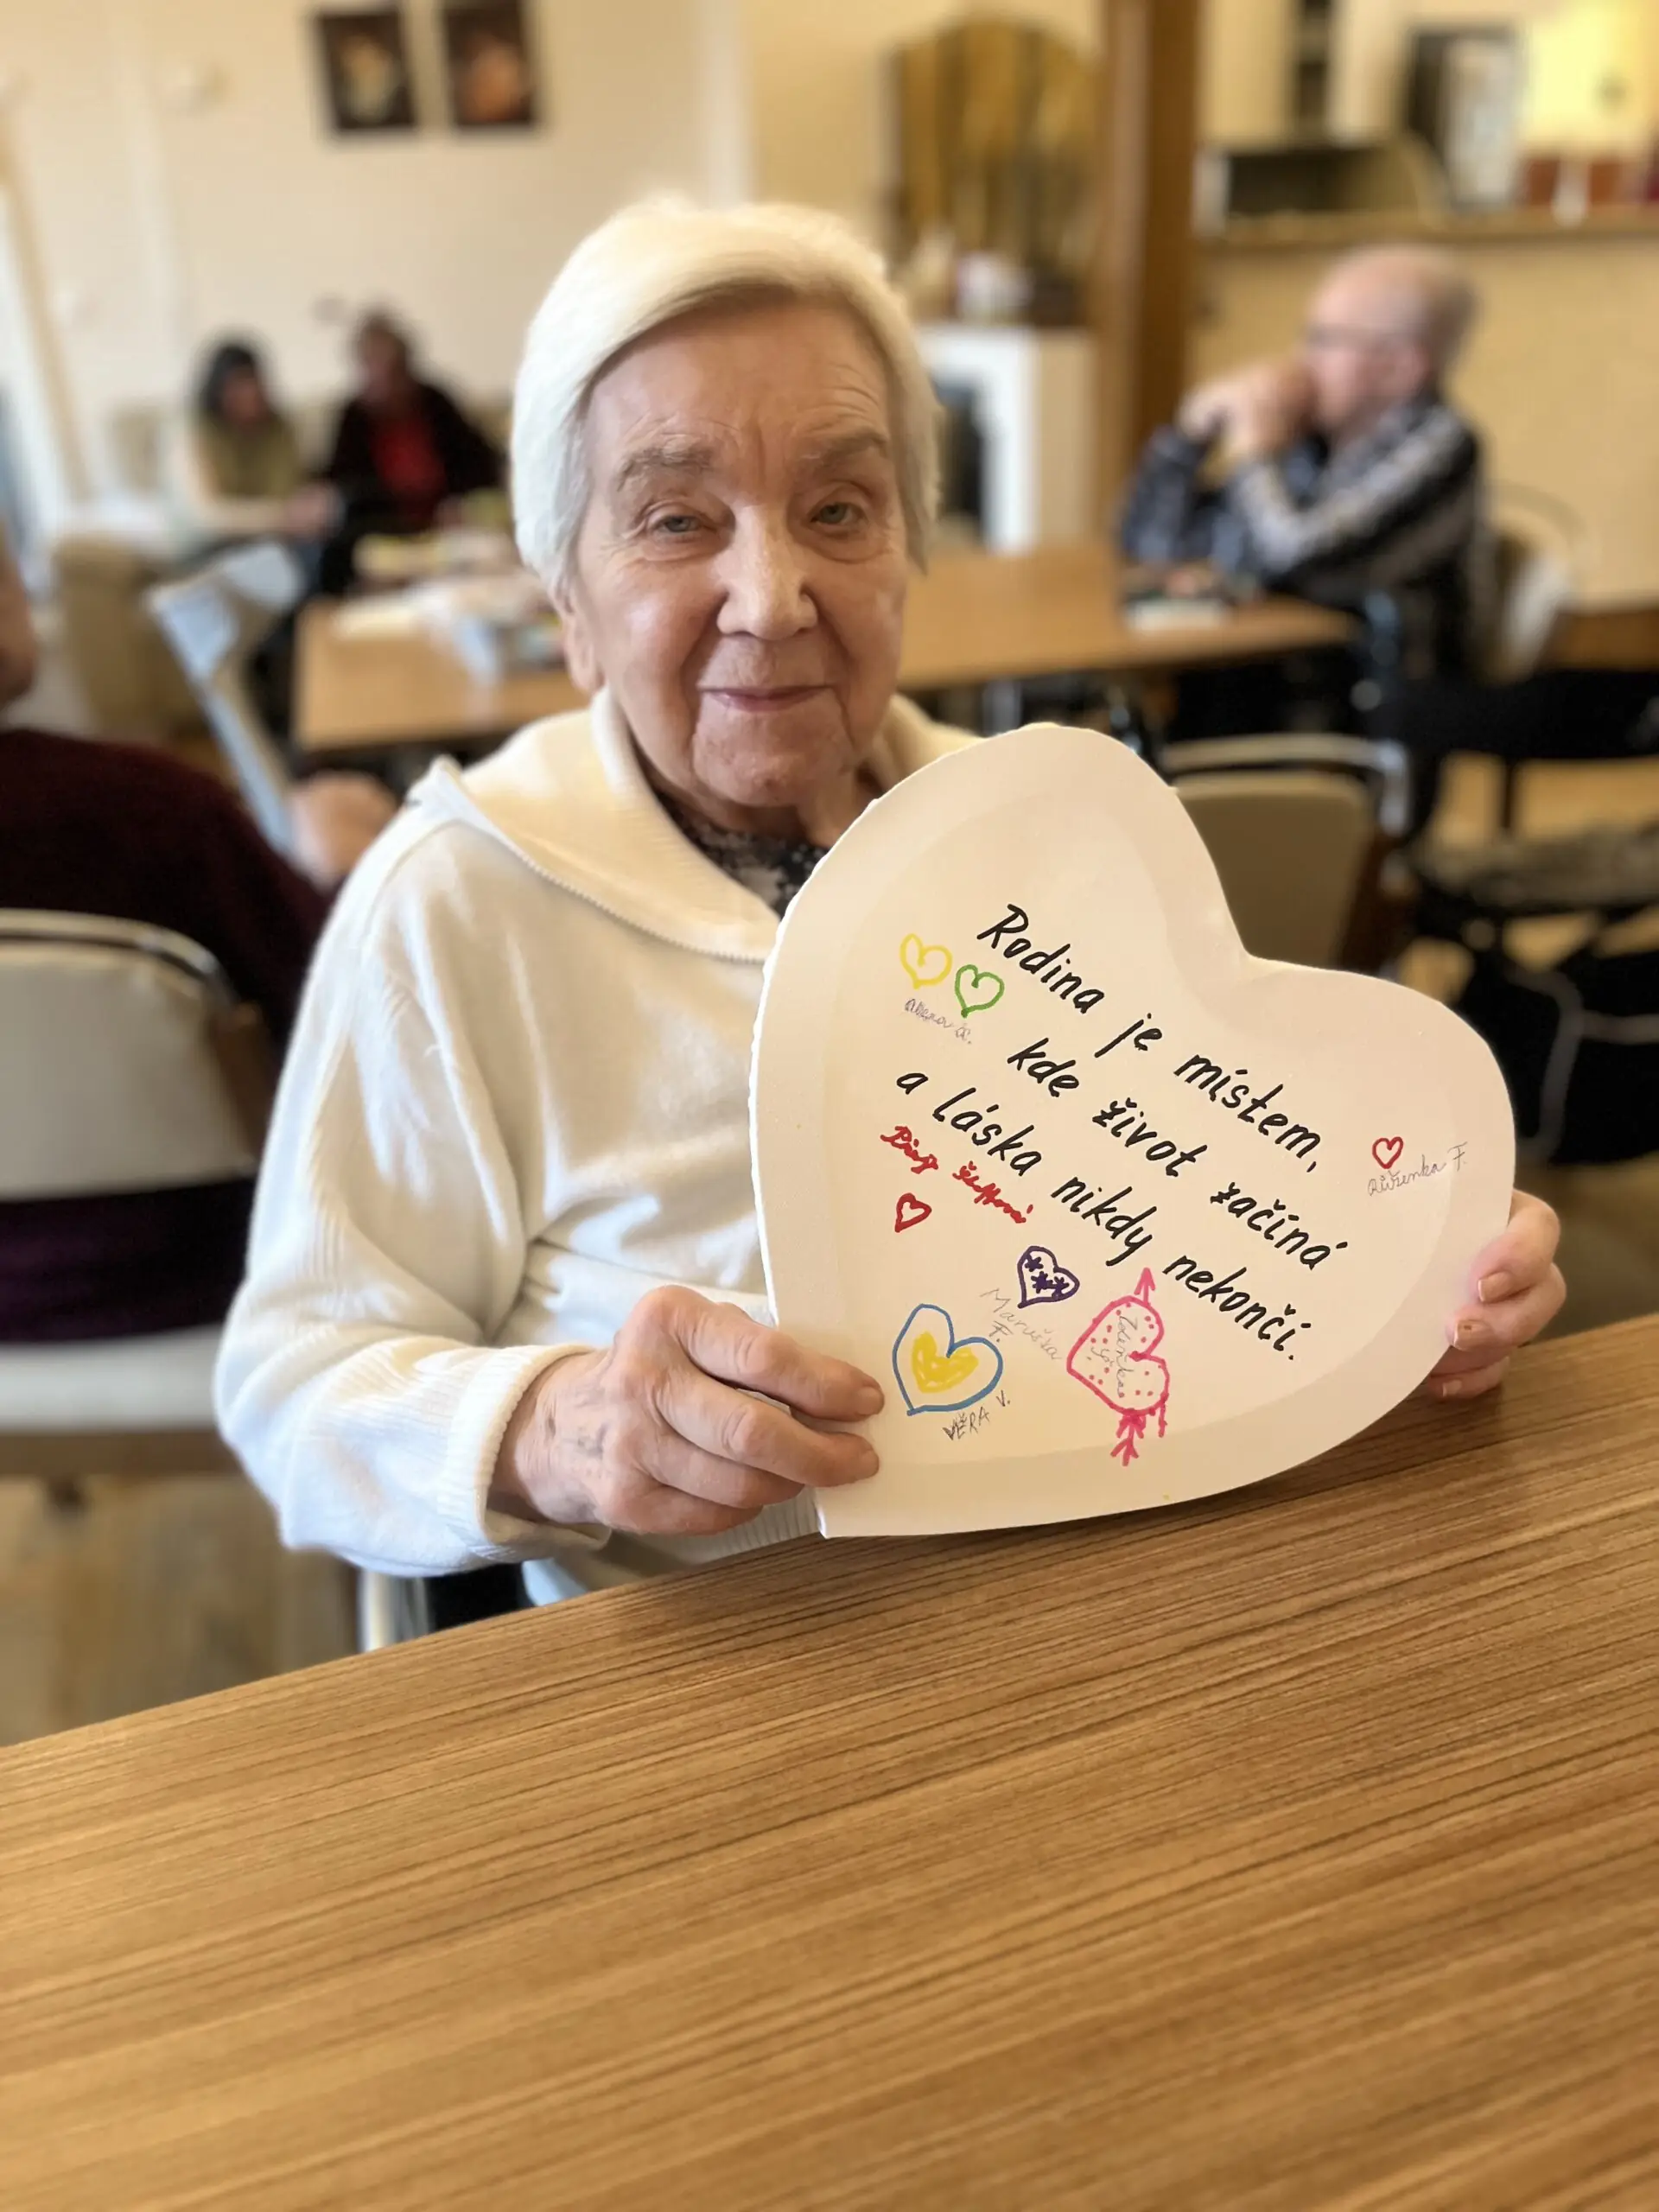 Rodina je místem,
kde život začíná
a láska nikdy nekončí.
Růženka F.
Maruška
F.
VĚRA V.